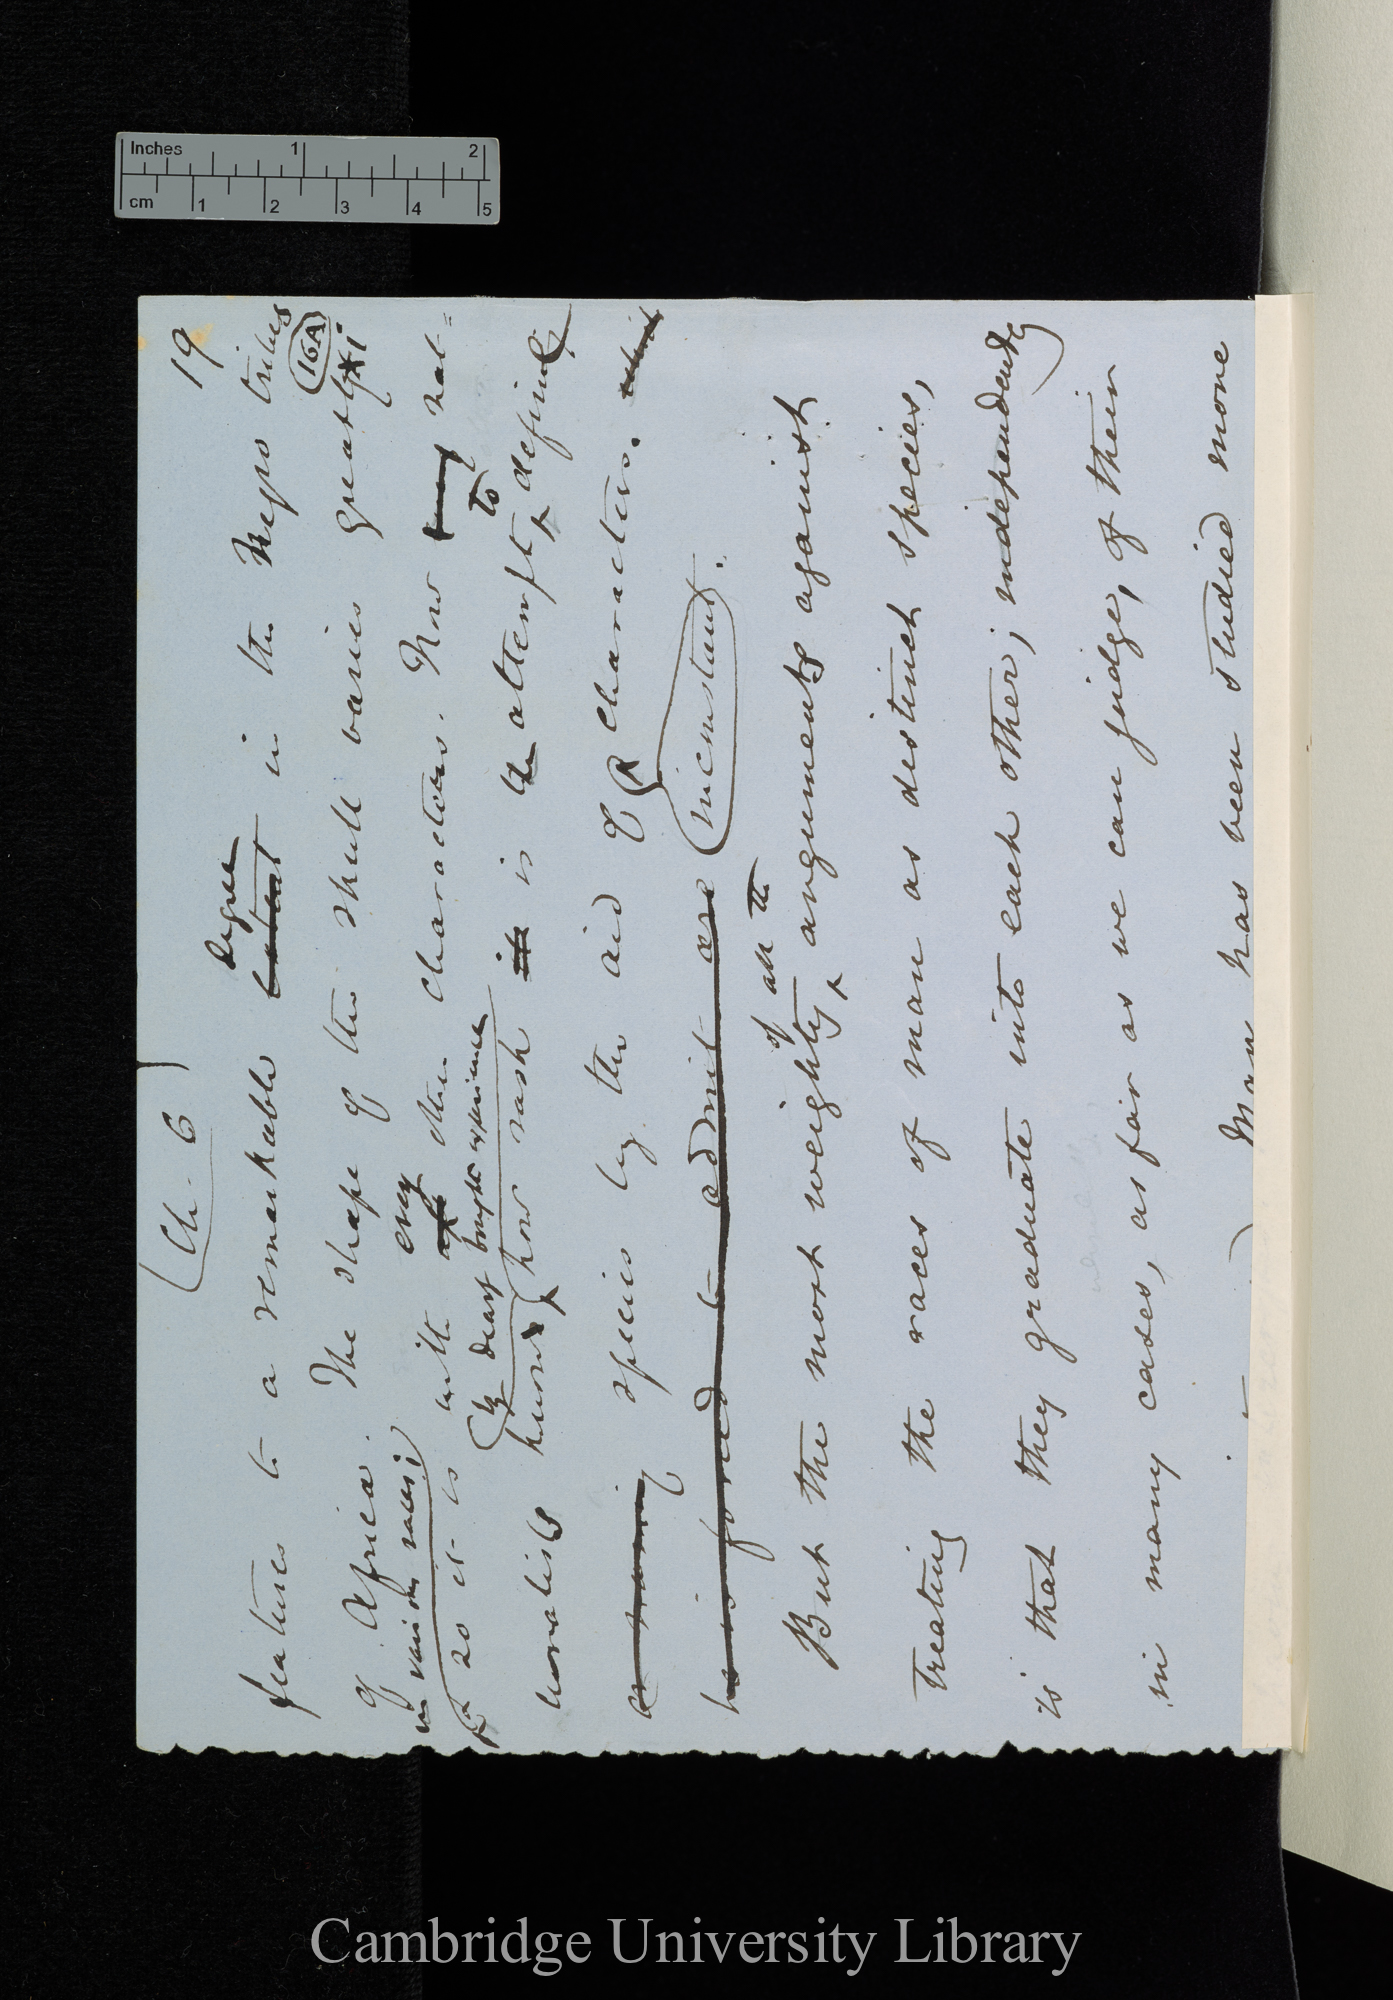 Inches 1 2
cm 1 2 3 4 5
(Ch. 6) 19
degree
features to a remarkable extent in the Negro tribes
16A
of Africa. The shape of the skull varies greatly
in various races;
every
& so it is with other characters. Now nat=
by dearly bought experience to
uralists know how rash it is attempt defining
species by the aid of characters.
inconstant
he is forced to admit are
of all the
But the most weighty arguments against
treating the races of man as distinct species,
is that they graduate into each other, independently
in many cases, as far as we can judge, of their
Man has been studied more
Cambridge University Library